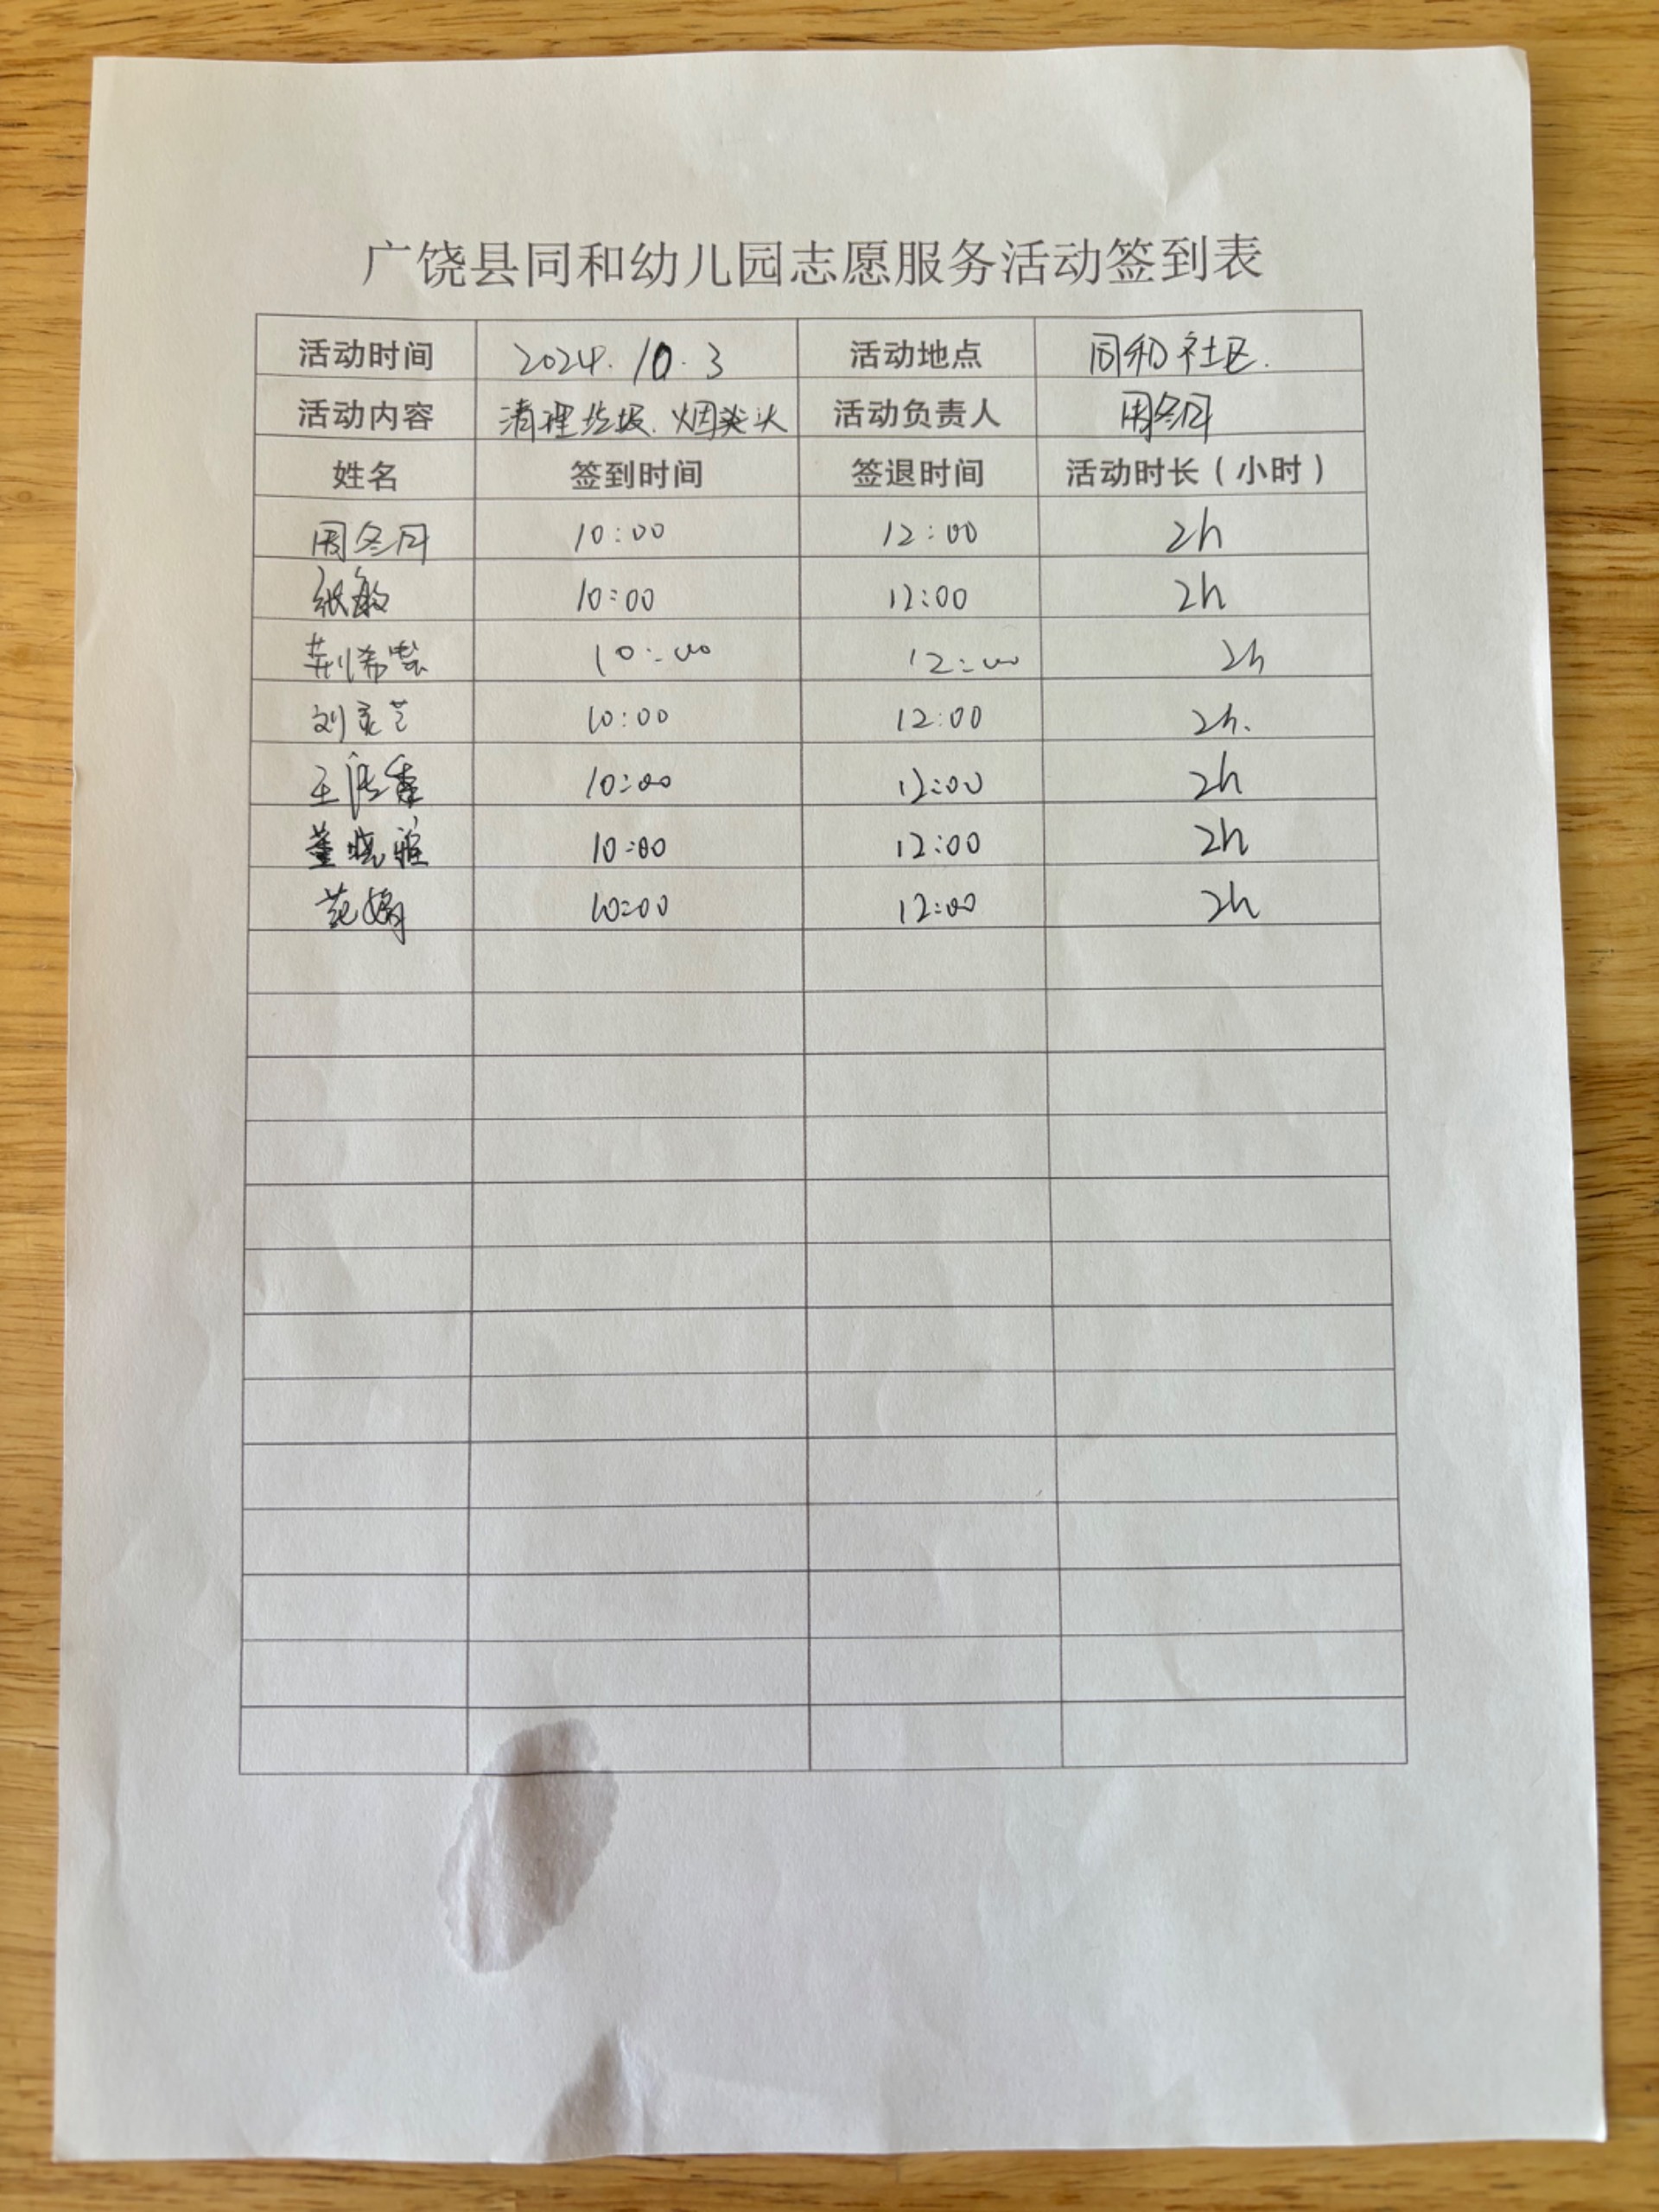 广饶县同和幼儿园志愿服务活动签到表
活动时间 2024.10.3 活动地点 同和社区.
活动内容 清理垃圾.烟头 活动负责人 周冬月
姓名 签到时间 签退时间 活动时长（小时）
周冬月 10:00 12:00 2h
张敏 10:00 12:00 2h
荆希 10:00 12:00 2h
刘灵芝 10:00 12:00 2h.
王 香 10:00 12:00 2h
董晓雅 10:00 12:00 2h
范娟 10:00 12:00 2h